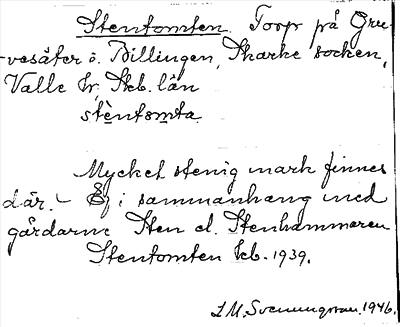 Stentomten. Torp på Gru-
vesäter ö. Billingen, Skarke socken,
Valle hr, Skb. län
stèntom̥ta.
Mycket stenig mark finnes
där. – Ej i sammanhang med
gårdarne Sten el. Stenhammaren
Stentomten kb. 1939.
I. M. Svenungsson. 1946.